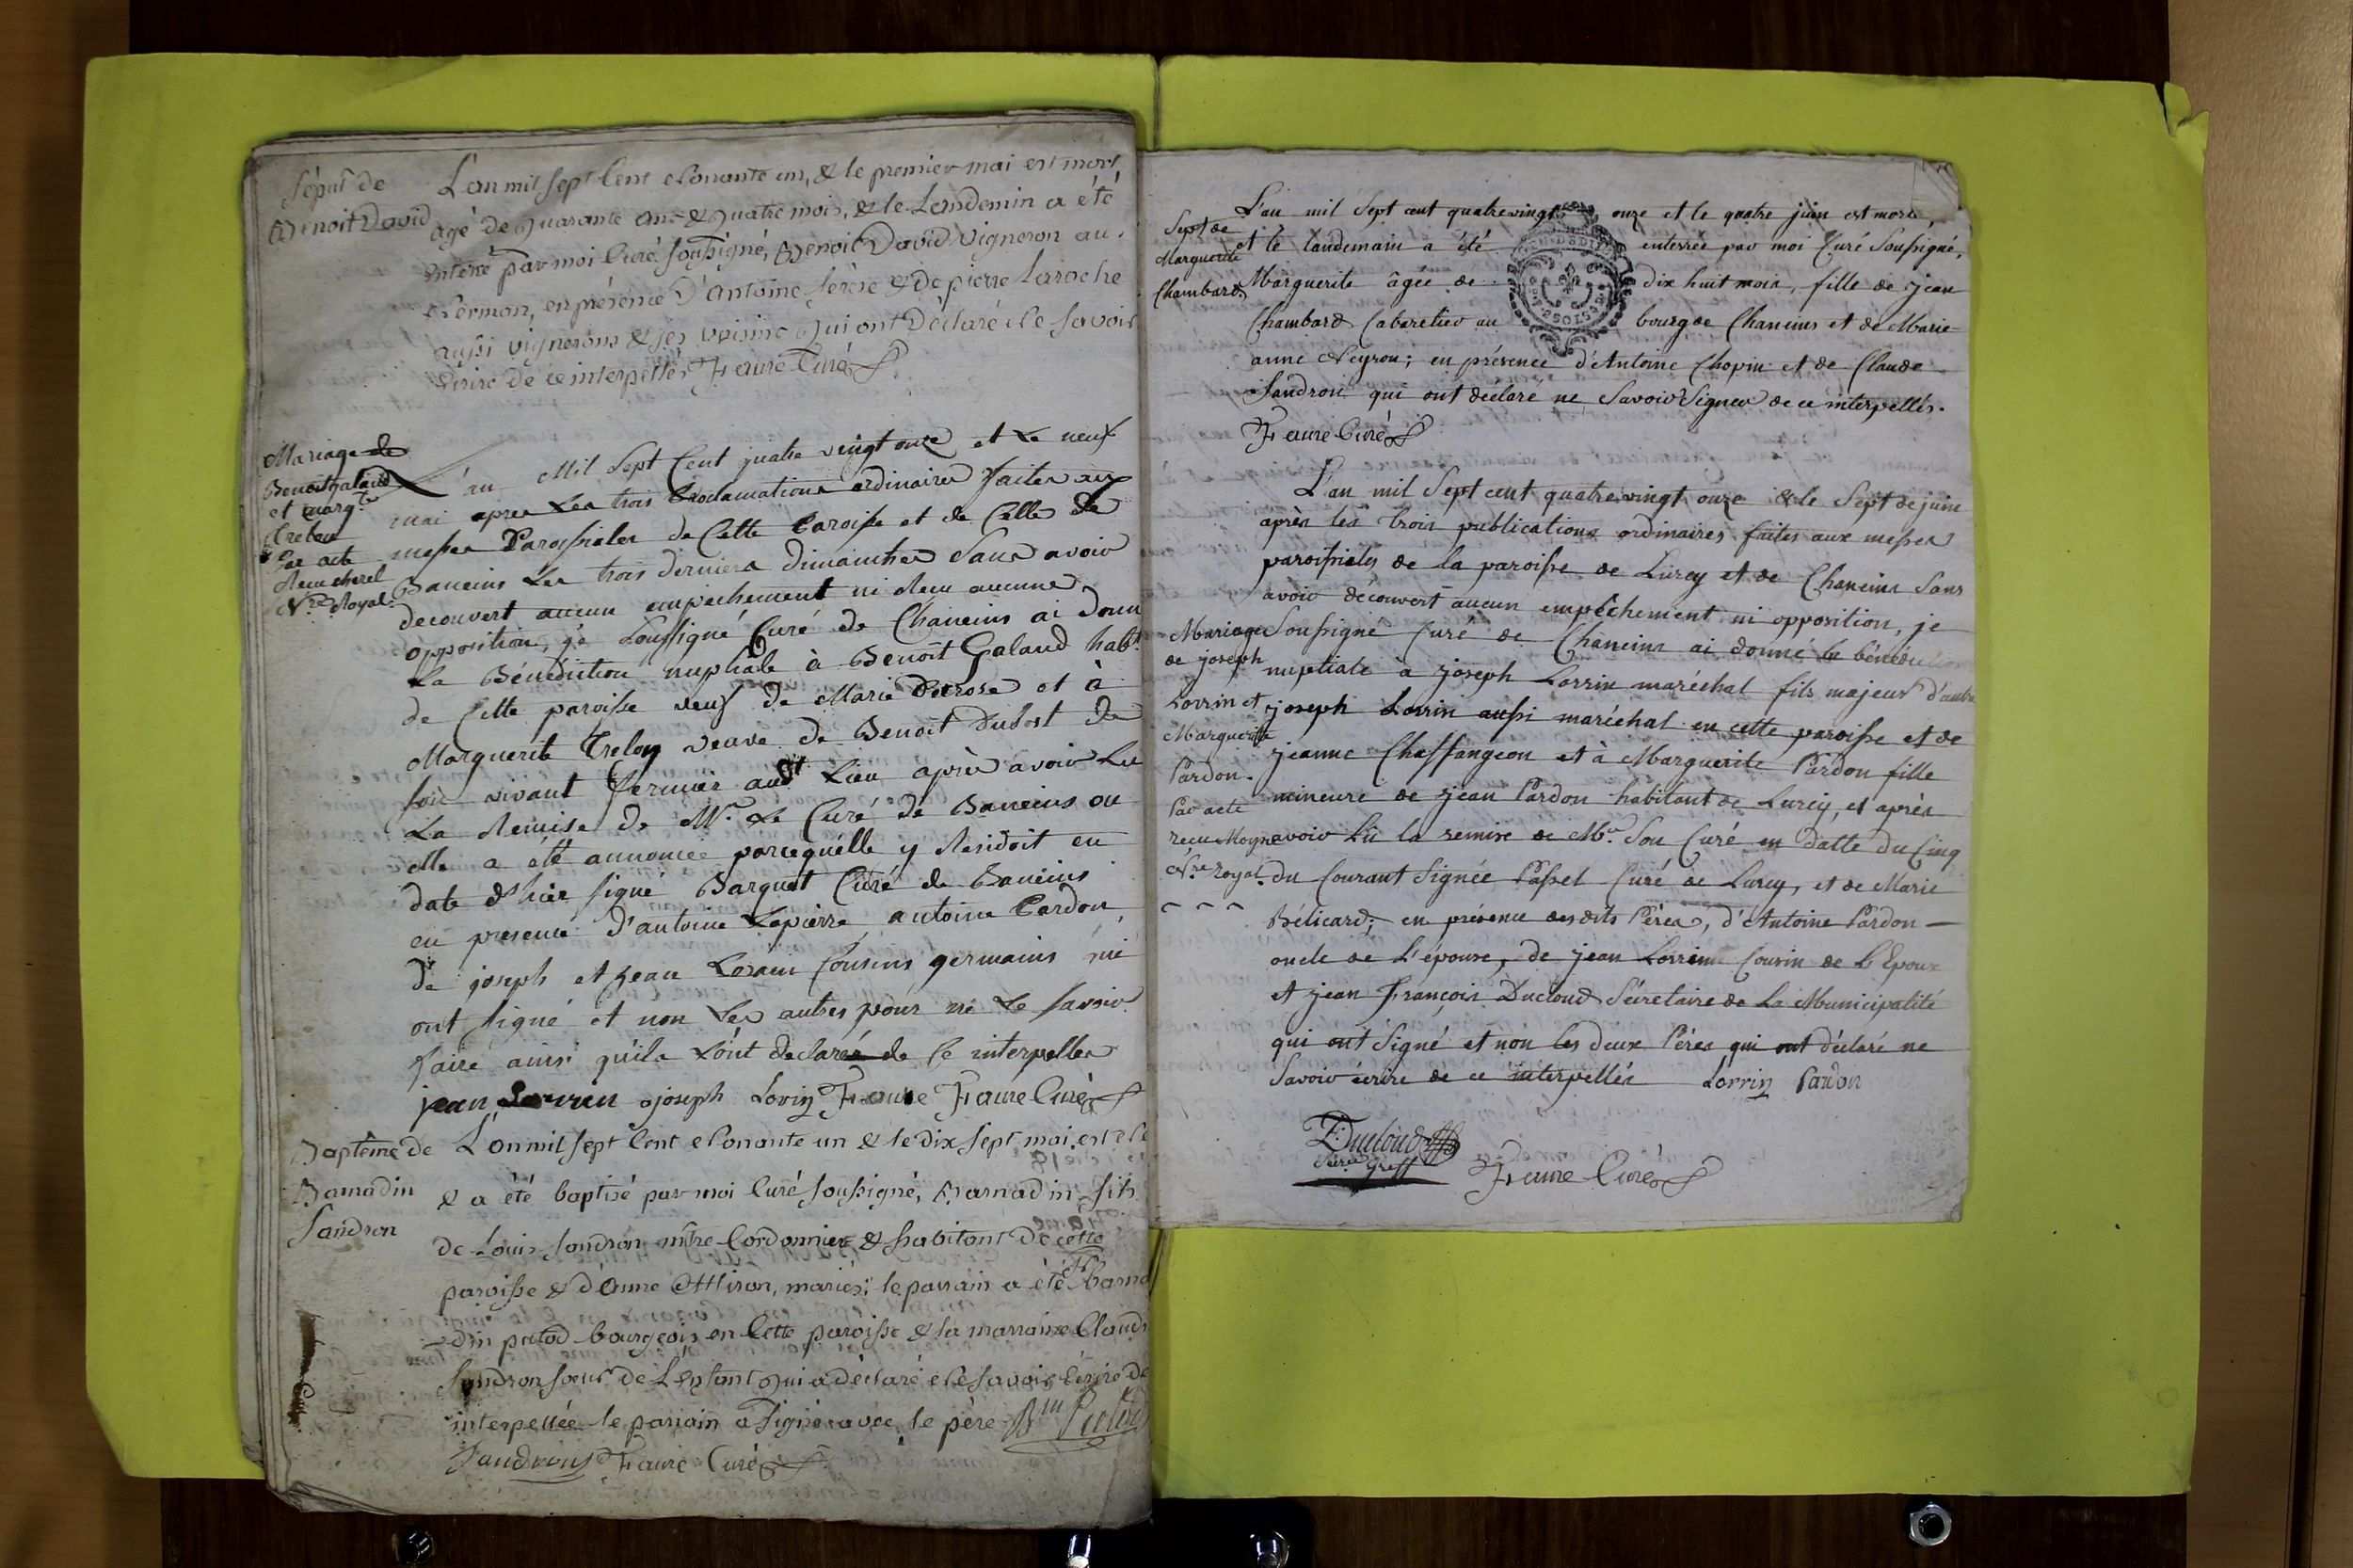 Sépul de
Benoit David
L'an mil sept Cent Nonante un, & le premier mai est mort,
agé de Quarante ans & Quatre mois, & le Lendemin a été
enterré par moi Curé soussigné, Benoit David vigneron au
Nermon, en présence d'Antoine Serère & de pierre Laroche
aussi vignerons & ses voisins qui ont Déclaré Ne savoir
écrire de ce interpellés Faure Curé
Mariage de
Benoit galand
et marg.te
Treleu
Par acte
Recu cherel
N.re Royal.
L'an Mil Sept Cent quatre vingt onze et Le neuf
mai apres Les trois Proclamations ordinaires faites aux
messes Paroissiales de Cette Paroisse et de Celle de
Baneins Les trois derniers dimanches Sans avoir
decouvert aucun empechement ni Recu aucune
opposition, je Soussigné Curé de Chaneins ai donné
La Bénédiction nuptiale à Benoit Galand hab.t
de Cette paroisse veuf de Marie Decrose et à
Marguerite Treley veuve de Benoit Dubost de
son vivant fermier audt Lieu après avoir Lu
La Remise de Mr. Le Curé de Baneins ou
elle a été annoncée parcequ'elle y Residoit en
date d'hier signé Barquet Curé de Baneins
en presence d'antoine Lapierre antoine Pardon,
de joseph et jean Lorain Cousins germains qui
ont signé et non Les autres pour ne Le savoir
faire ainsi qu'ils L'ont declarés de Ce interpelles
jean Lorrin joseph Lorin Faure Faure Curé
Baptême de
Barnadin
Sandron
L'an mil sept Cent Nonante un & le Dix sept mai est né
& a été baptisé par moi Curé soussigné, Barnadin fils
de Louis Sandron mtre Cordonnier & habitant De cette
paroisse & d'Anne Miron, mariés; le parrain a été Barna
-din patod bourgeois en Cette paroisse & la marraine Claud
Sandron sœur de L'enfant qui a déclaré Ne savoir écrire de
interpellée le parrain a signé avec le père Bin Patod
Sandron Faure Curé
Sept de
Marguerite
Chambard
L'an mil Sept cent quatre vingt onze et le quatre juin est morte,
et le landemain a été enterrée par moi Curé Soussigné,
Marguerite âgée de dix huit mois, fille de jean
Chambard Cabaretier au bourg de Chaneins et de Marie
anne Neyron; en présence d'Antoine Chopin et de Claude
Sandron qui ont déclaré ne Savoir Signer de ce interpellés.
Faure Curé
L'an mil Sept cent quatre vingt onze & le Sept de juin
après les trois publications ordinaires faites aux messes
paroissiales de la paroisse de Lurcy et de Chaneins Sans
avoir découvert aucun empêchement ni opposition, je
Soussigné Curé de Chaneins ai donné la bénédiction
nuptiale à joseph Lorrin maréchal fils majeur d'autre
joseph Lorrin aussi maréchal en cette paroisse et de
jeanne Chaffangeon et à Marguerite Pardon fille
mineure de jean Pardon habitant de Lurcy, et après
avoir Lu la remise de Mr. Son Curé en datte du Cinq
du Courant Signée Passet Curé de Lurcy, et de Marie
Bélicard; en présence desdits Péres, d'Antoine Pardon —
oncle de L'épouse, de jean Lorrin Cousin de L'Epoux
et jean François Ducloud Sécretaire de La Municipalité
qui ont Signé et non les deux Péres qui ont déclaré ne
Savoir écrire de ce interpellés Lorrin Pardon
Mariage
de joseph
Lorrin et
Marguerite
Pardon.
Par acte
recu Moyne
N.re royal.
Ducloud
Secre greff
Faure Curé